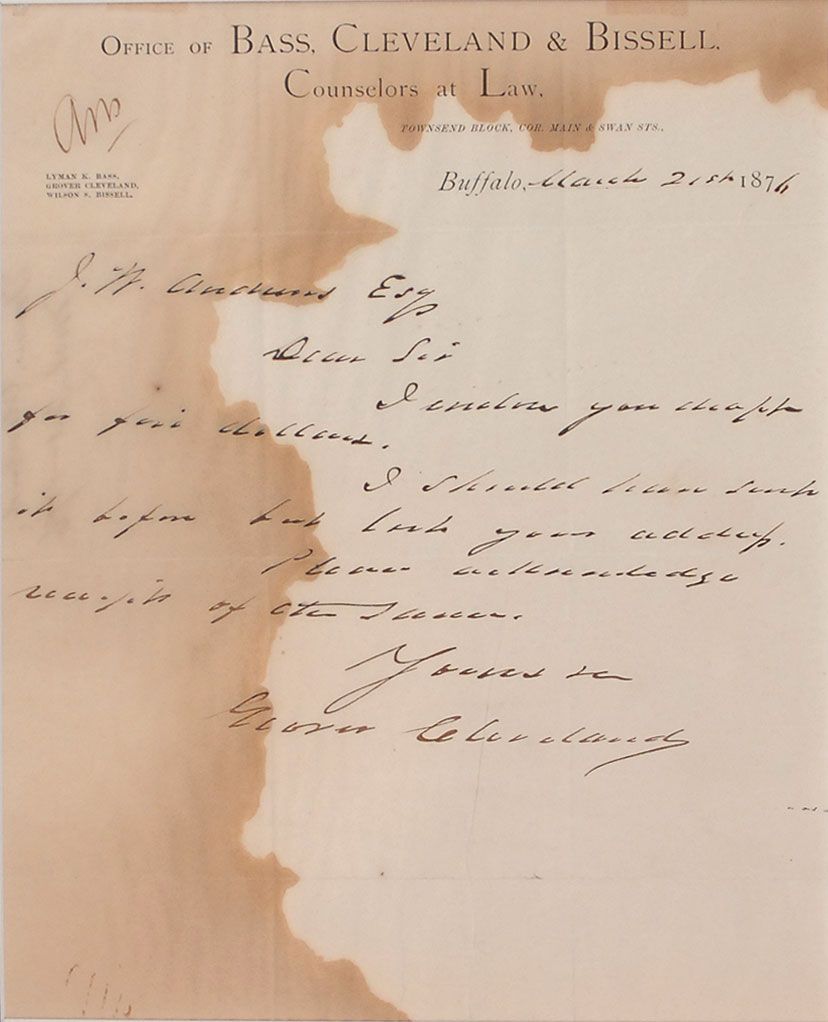 OFFICE OF BASS, CLEVELAND & BISSELL,
Counselors at Law,
TOWNSEND BLOCK, COR. MAIN & SWAN STS.,
Ans
LYMAN K. BASS,
GROVER CLEVELAND,
WILSON S. BISSELL.
Buffalo, March 21st 1876
J. W. Andrews Esq
Dear Sir
I enclose you draft
for five dollars.
I should have sent
it before but lost your address.
Please acknowledge
receipt of the same.
Yours &c
Grover Cleveland